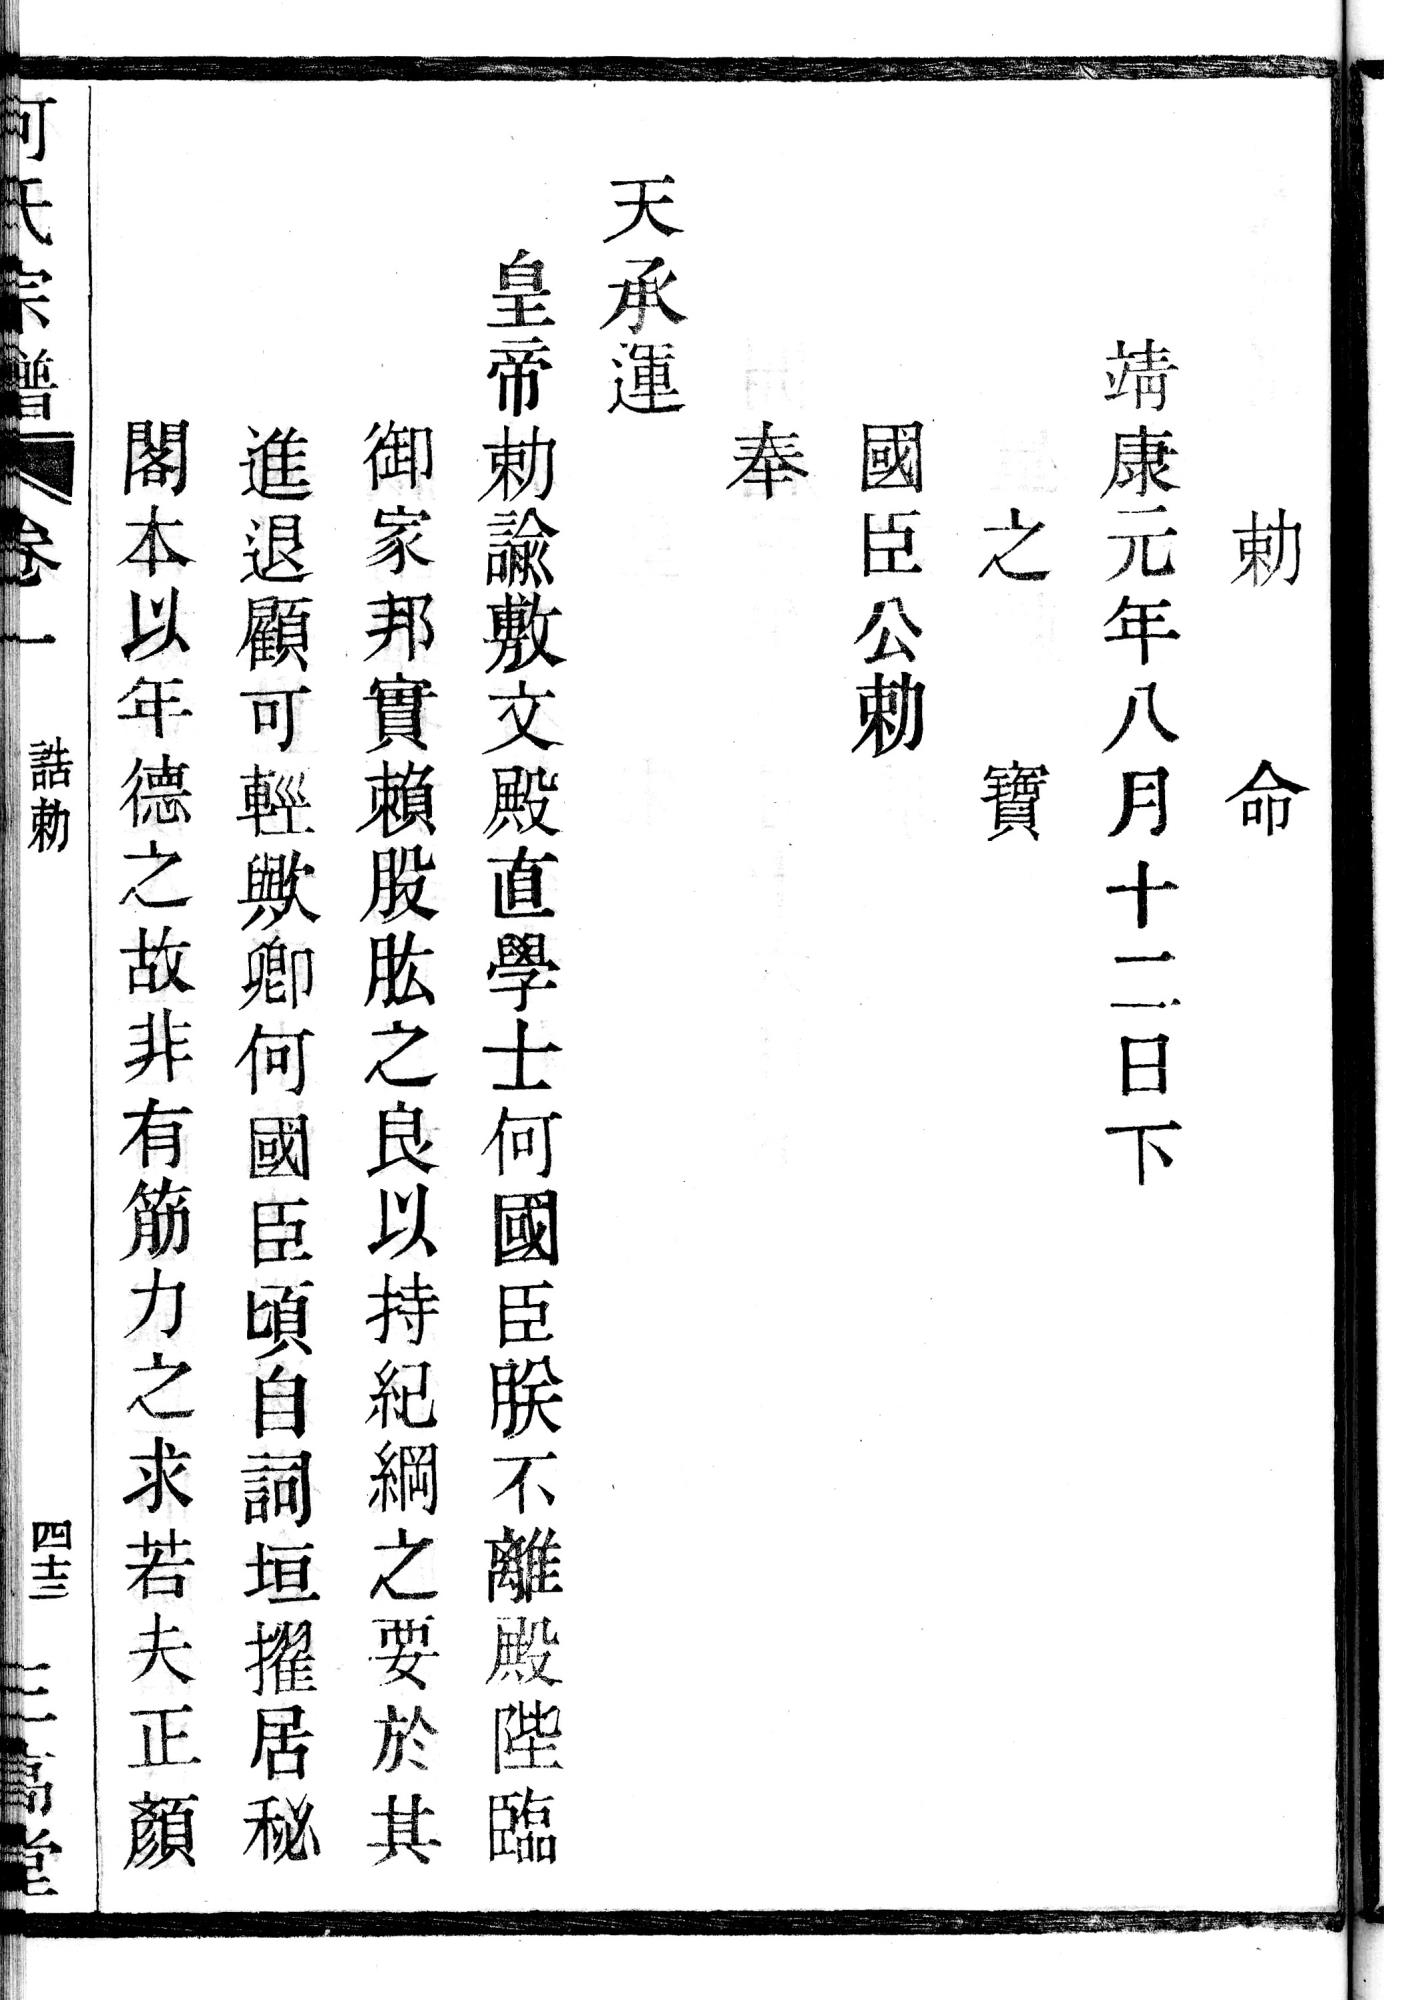 勅命
靖康元年八月十二日下
之寶
國臣公勅
奉
天承運
皇帝勅諭敷文殿直學士何國臣朕不離殿陛臨
御家邦實賴股肱之良以持紀綱之要於其
進退顧可輕歟卿何國臣頃自詞垣擢居秘
閣本以年德之故非有筋力之求若夫正顏
何氏宗譜 卷一 誥勅 四十三 三高堂